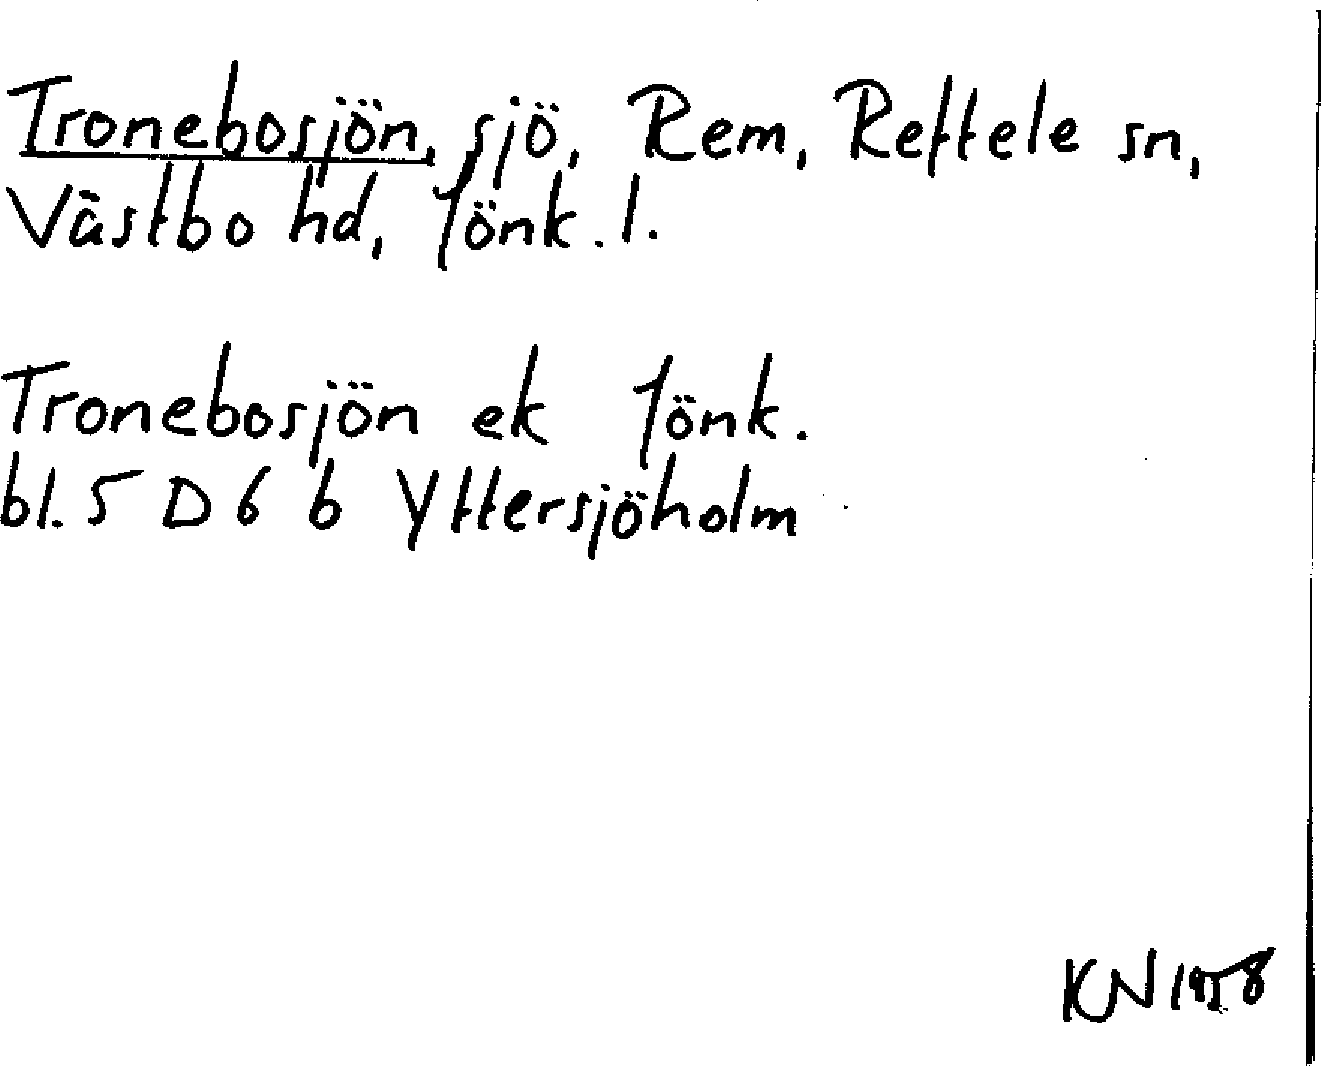 Tronebosjön, sjö, Rem, Reftele sn,
Västbo hd, Jönk. l.
Tronebosjön ek Jönk.
bl. 5 D 6 b Yttersjöholm
KN 1958